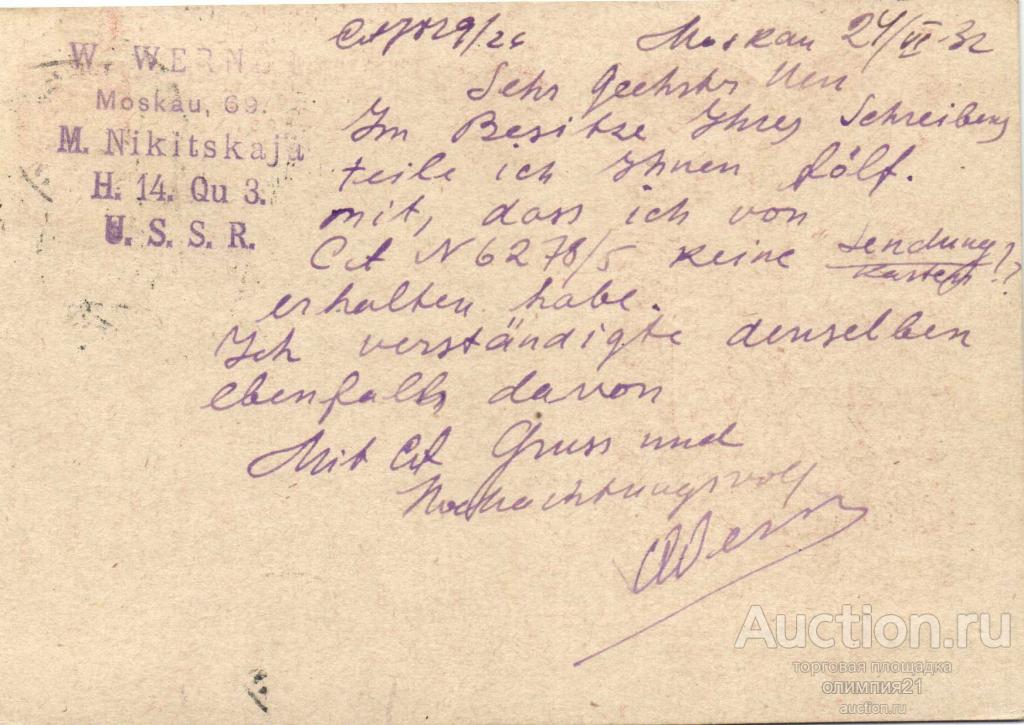 W. WERN
Moskau, 69.
M. Nikitskaja
H. 14. Qu 3.
U. S. S. R.
Moskau 24/VI-32
Sehr Geehrter
Im Besitze Ihres Schreibens
teile ich Ihnen fölf.
mit, dass ich von
CA N 6278/5 keine Sendung!?
Karten
erhalten habe.
Ich verständigte denselben
ebenfalls davon
Mit CA Gruss und
Hochachtungsvoll
Auction.ru
торговая площадка
олимпия21
auction.ru